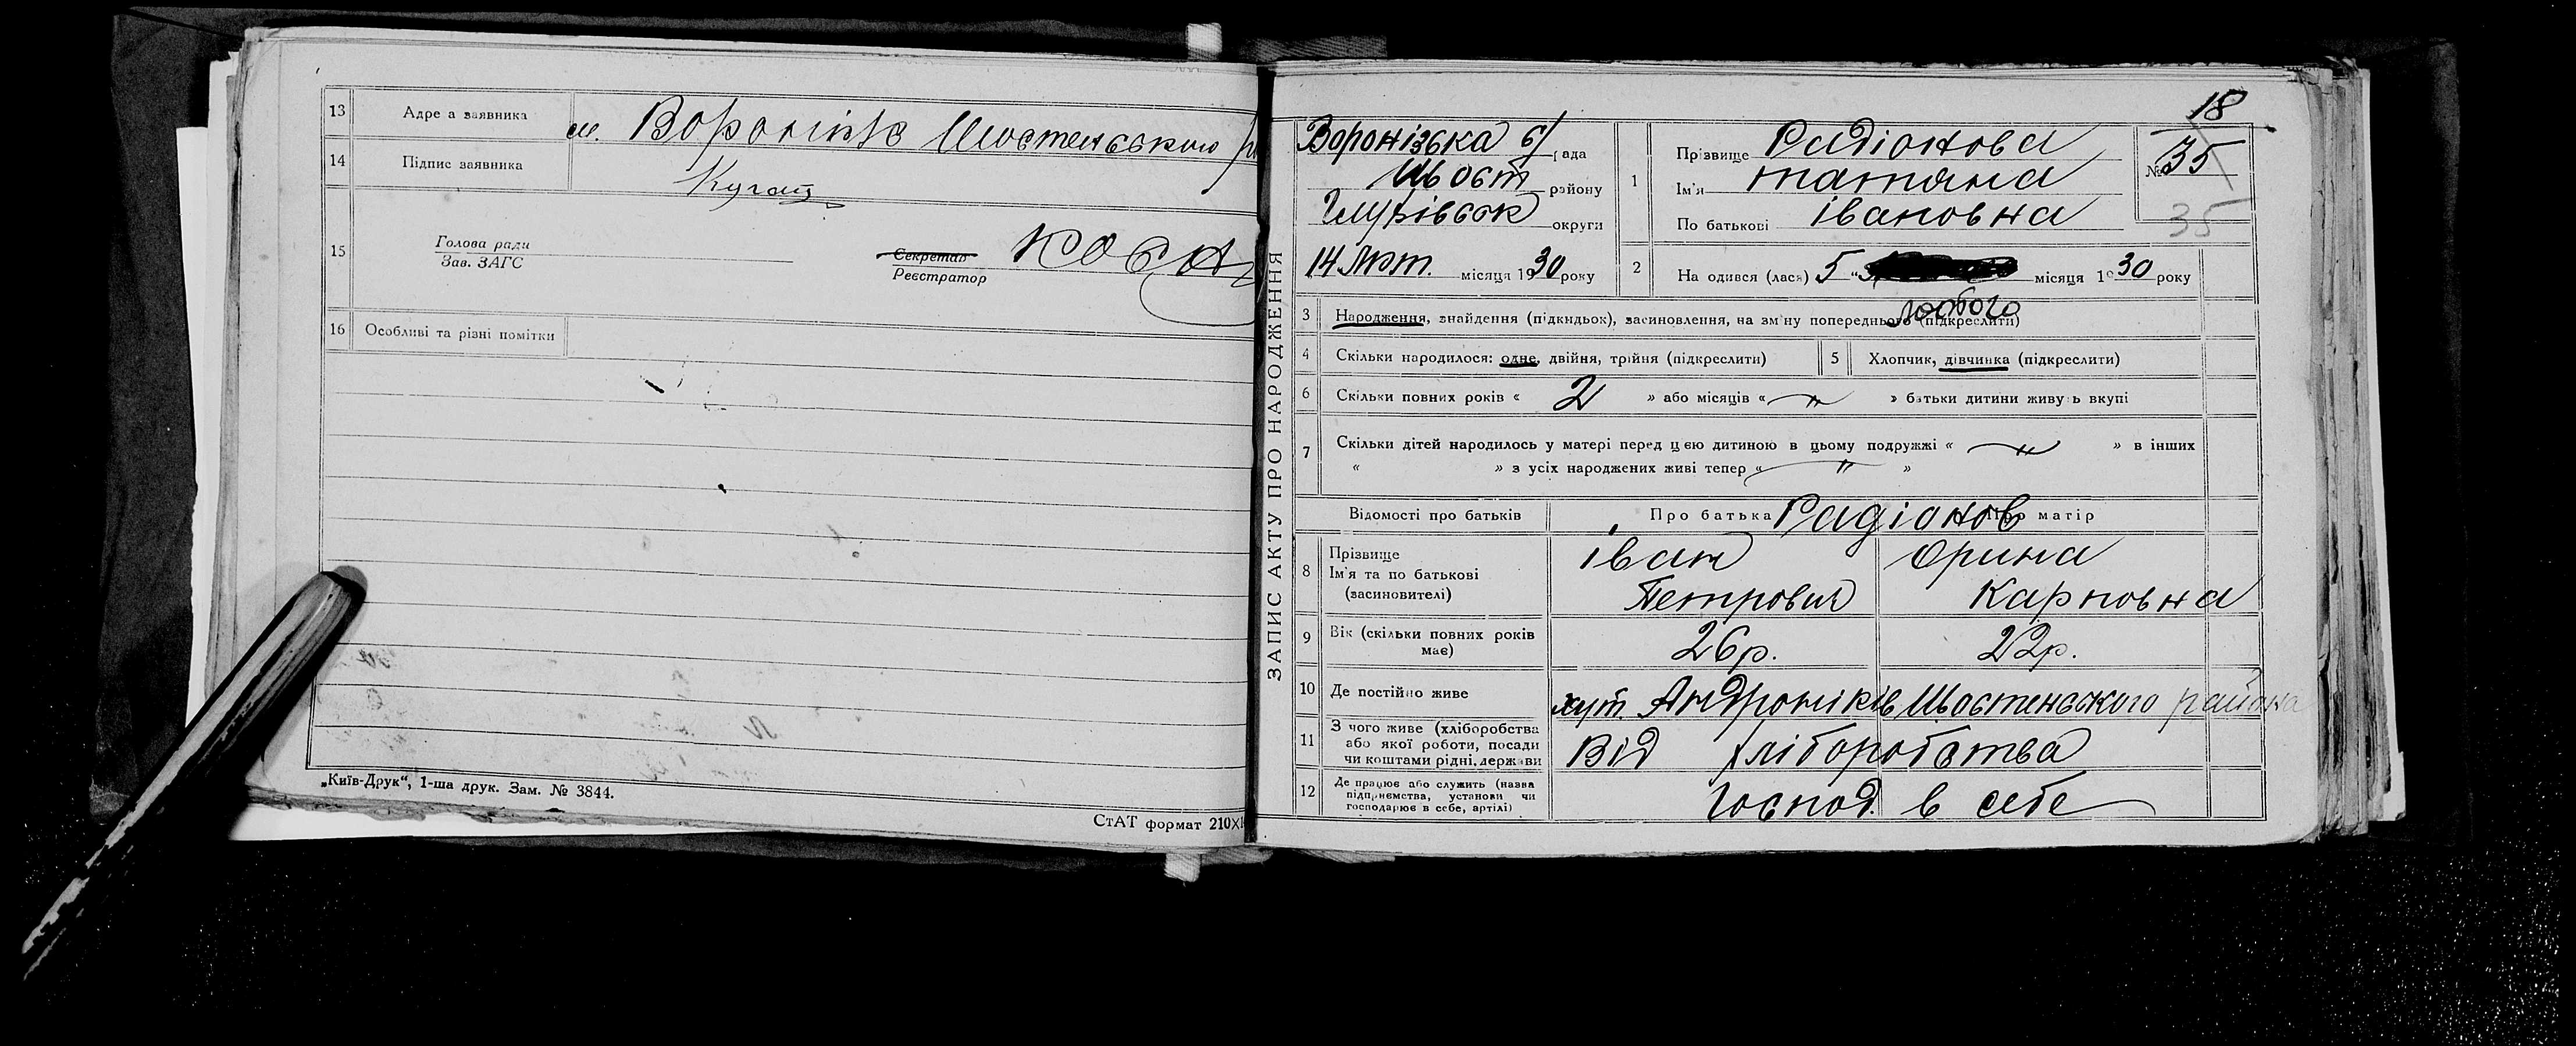 13 Адре а заявника м. Вороніж Шостенського
14 Підпис заявника
15 Голова ради
Зав. ЗАГС
Секретар
Реєстратор
16 Особливі та різні помітки
„Київ-Друк“, 1-ша друк. Зам. № 3844.
СтАТ формат 210×
ЗАПИС АКТУ ПРО НАРОДЖЕННЯ
18
Воронізька с/рада
Шост району
Глухівськ округи
14 Лют. місяця 1930 року
1 Прізвище Радіонова
Ім'я татяна
По батькові Івановна
№ 35
35
2 На одився (лася) 5 " місяця 1930 року
лютого
3 Народження, знайдення (підкидьок), засиновлення, на зм ну попереднього (підкреслити)
4 Скільки народилося: одне, двійня, трійня (підкреслити) 5 Хлопчик, дівчинка (підкреслити)
6 Скільки повних років « 2 » або місяців « " » батьки дитини живуь вкупі
7 Скільки дітей народилось у матері перед цією дитиною в цьому подружжі « " » в інших
« » з усіх народжених живі тепер « " »
Відомості про батьків Про батька Радіонов Про матір
8 Прізвище Іван Орина
Ім'я та по батькові
(засиновителі) Петрович Карповна
9 Вік (скільки повних років має) 26р. 22р.
10 Де постійно живе хут. Андроніків Шостенського района
11 З чого живе (хліборобства
або якої роботи, посади
чи коштами рідні, держави Від хліборобства
12 Де працює або служить (назва
підприємства, установи чи
господарює в себе, артілі) Господ. в себе